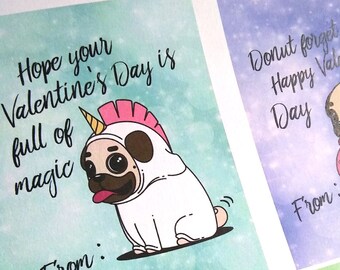 Hope your
Valentine's Day is
full of
magic
From :
Donut forget
Happy
Day
From :